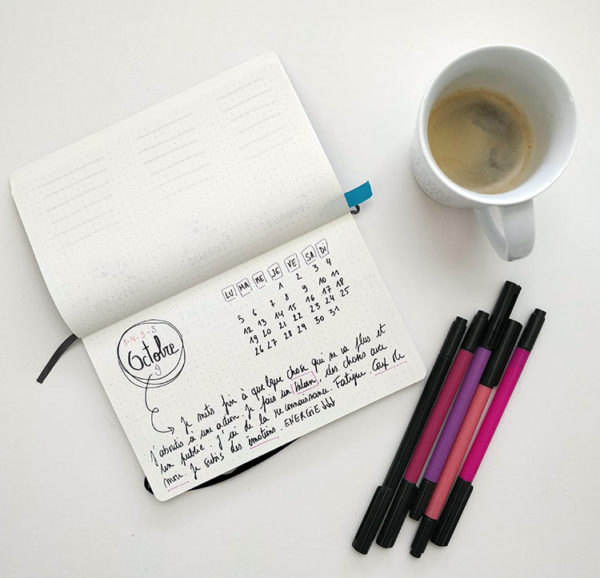 LU MA ME JE VE SA DI
1 2 3 4
5 6 7 8 9 10 11
12 13 14 15 16 17 18
19 20 21 22 23 24 25
26 27 28 29 30 31
Octobre
9
Je mets fin à quelque chose qui ne va plus et
j'aboutis à une action. Je fais un bilan, des choses avec
un public. J'ai de la reconnaissance. Fatigue.
mou. Je subis des émotions. ENERGIE ↓↓↓